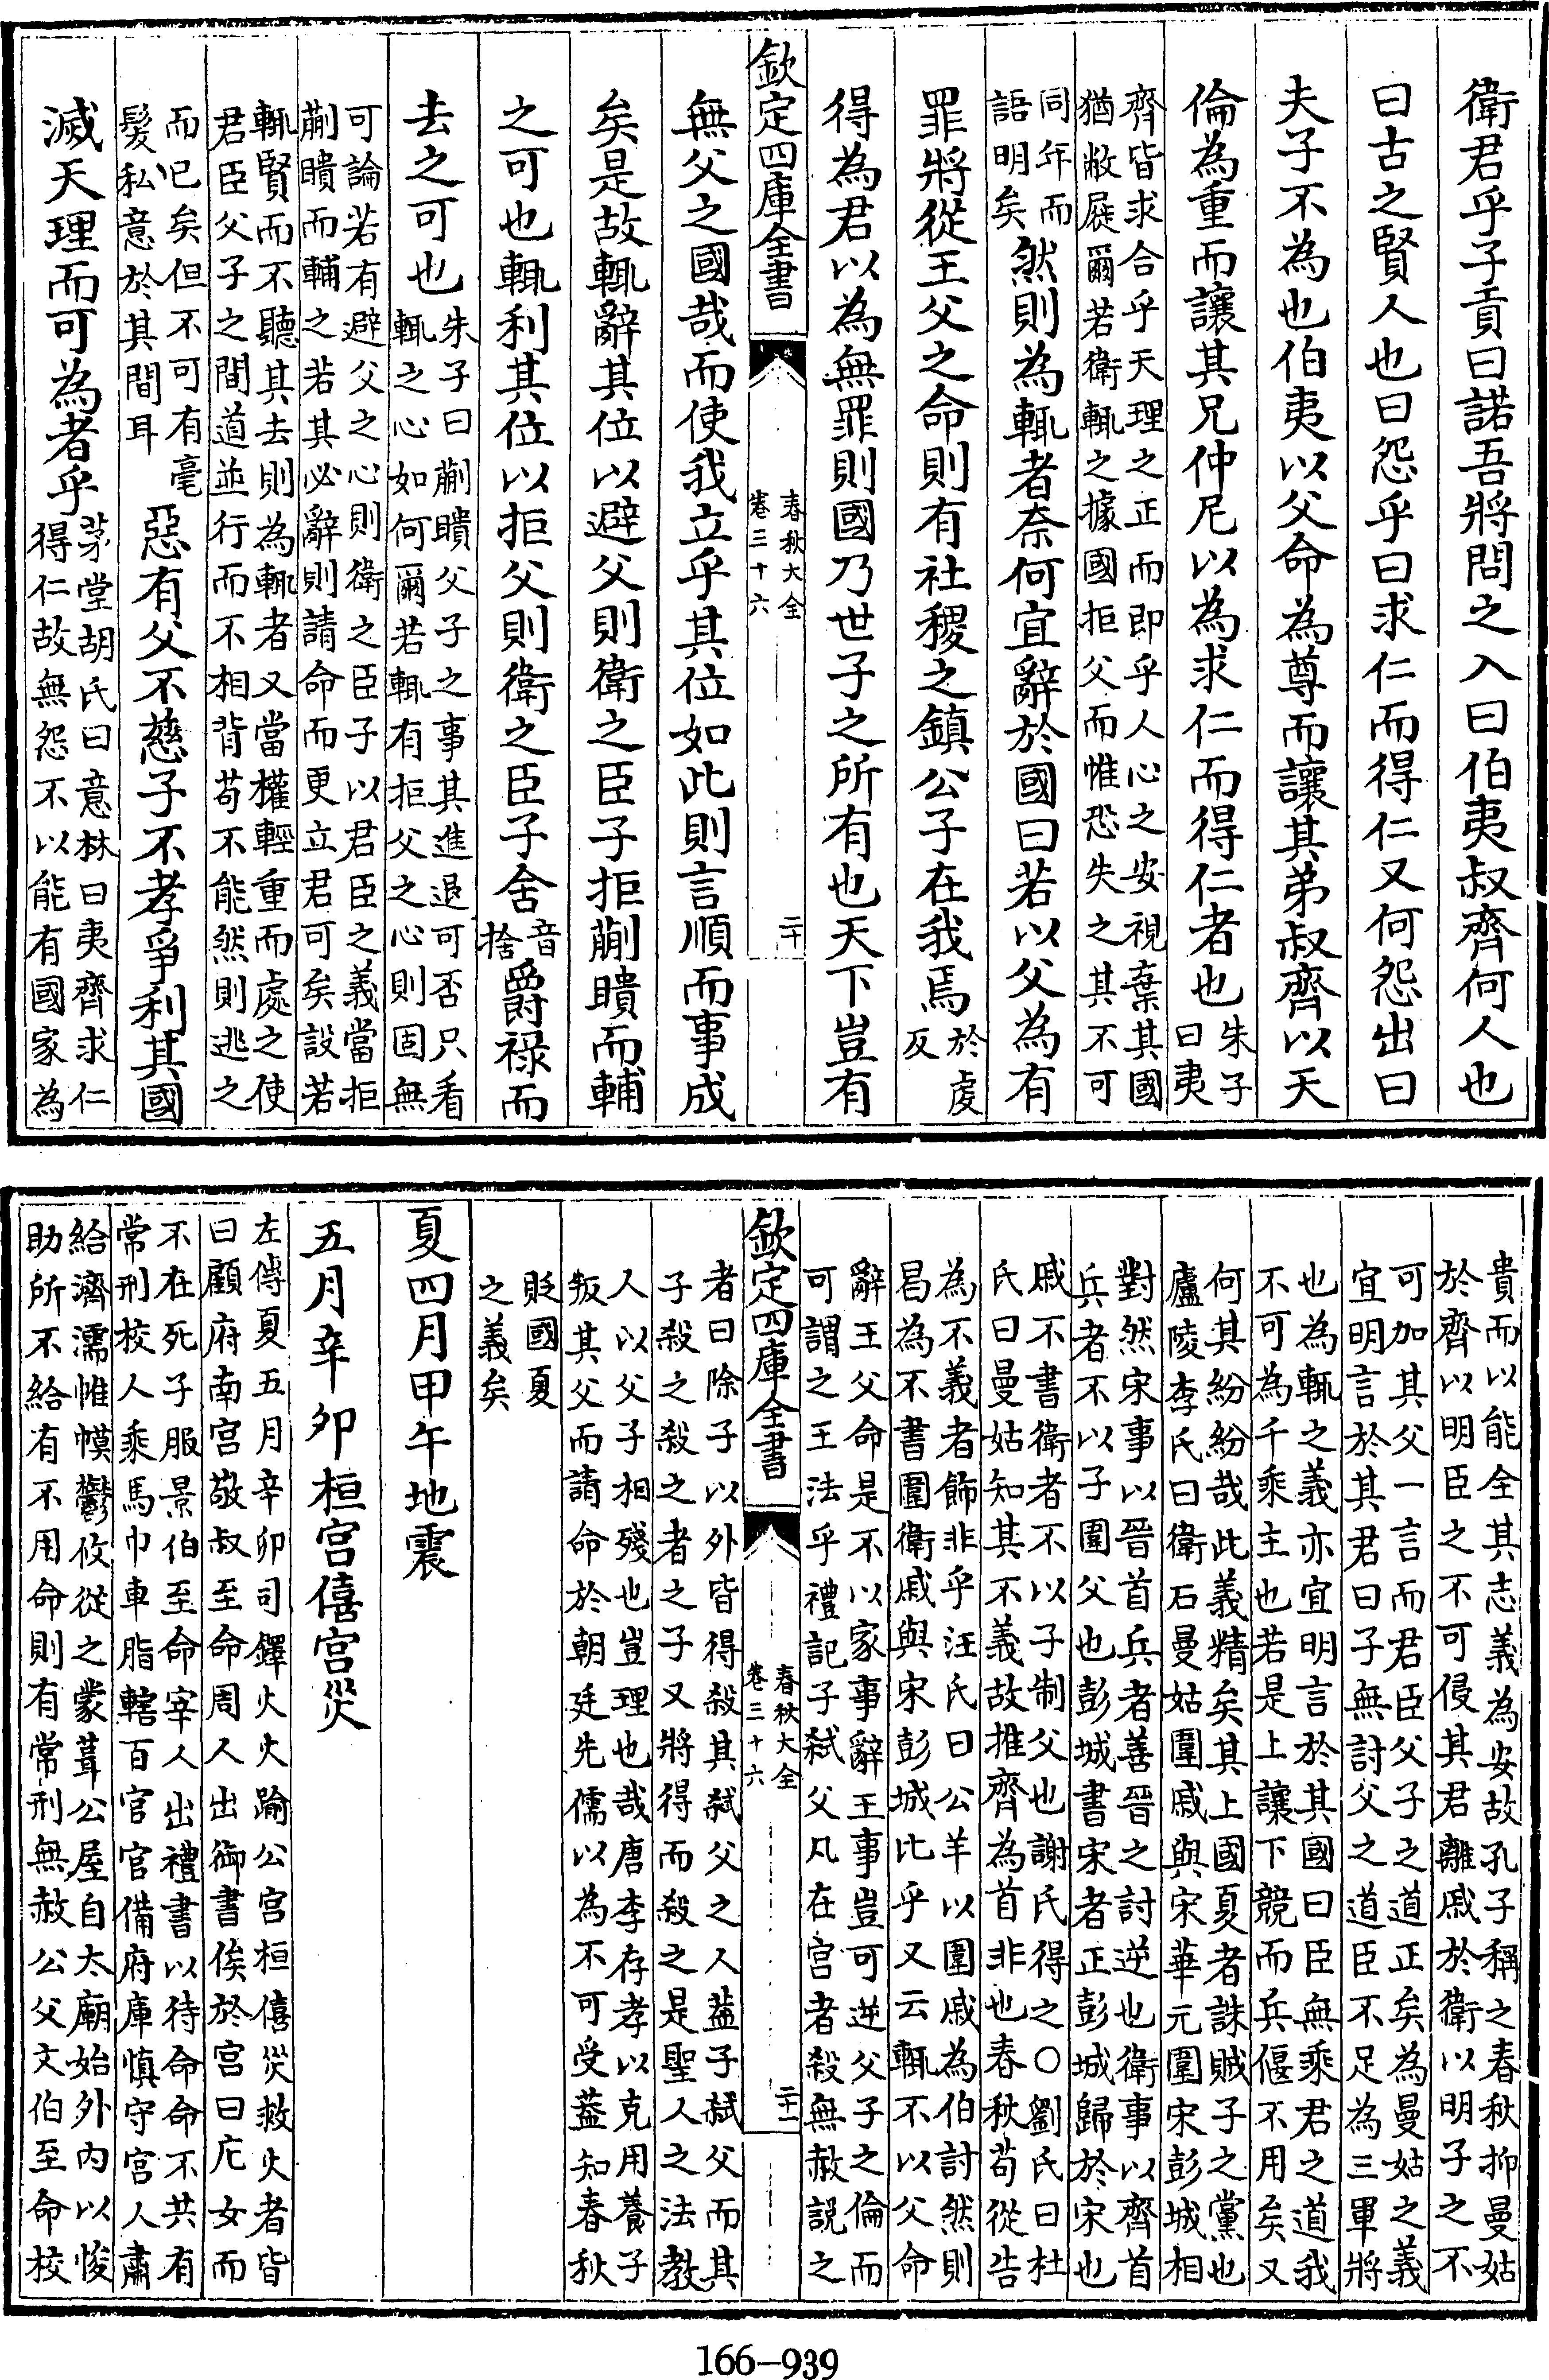 衛君乎子貢曰諾吾將問之入曰伯夷叔齊何人也
曰古之賢人也曰怨乎曰求仁而得仁又何怨出曰
夫子不為也伯夷以父命為尊而讓其弟叔齊以天
倫為重而讓其兄仲尼以為求仁而得仁者也朱子
曰夷
齊皆求合乎天理之正而即乎人心之安視棄其國
猶敝屣爾若衛輒之據國拒父而惟恐失之其不可
同年而
語明矣然則為輒者奈何宜辭於國曰若以父為有
罪將從王父之命則有社稷之鎮公子在我焉於虔
反
得為君以為無罪則國乃世子之所有也天下豈有
欽定四庫全書
春秋大全
卷三十六
二十
無父之國哉而使我立乎其位如此則言順而事成
矣是故輒辭其位以避父則衛之臣子拒蒯聵而輔
之可也輒利其位以拒父則衛之臣子舍音
捨爵祿而
去之可也朱子曰蒯聵父子之事其進退可否只看
輒之心如何爾若輒有拒父之心則固無
可論若有避父之心則衛之臣子以君臣之義當拒
蒯聵而輔之若其必辭則請命而更立君可矣設若
輒賢而不聽其去則為輒者又當權輕重而處之使
君臣父子之間道並行而不相背苟不能然則逃之
而已矣但不可有毫
髮私意於其間耳惡有父不慈子不孝爭利其國
滅天理而可為者乎茅堂胡氏曰意林曰夷齊求仁
得仁故無怨不以能有國家為
貴而以能全其志義為安故孔子稱之春秋抑曼姑
於齊以明臣之不可侵其君離戚於衛以明子之不
可加其父一言而君臣父子之道正矣為曼姑之義
宜明言於其君曰子無討父之道臣不足為三軍將
也為輒之義亦宜明言於其國曰臣無乘君之道我
不可為千乘主也若是上讓下競而兵偃不用矣又
何其紛紛哉此義精矣其上國夏者誅賊子之黨也
廬陵李氏曰衛石曼姑圍戚與宋華元圍宋彭城相
對然宋事以晉首兵者善晉之討逆也衛事以齊首
兵者不以子圍父也彭城書宋者正彭城歸於宋也
戚不書衛者不以子制父也謝氏得之○劉氏曰杜
氏曰曼姑知其不義故推齊為首非也春秋苟從告
為不義者飾非乎汪氏曰公羊以圍戚為伯討然則
昌為不書圍衛戚與宋彭城比乎又云輒不以父命
辭王父命是不以家事辭王事豈可逆父子之倫而
可謂之王法乎禮記子弒父凡在宮者殺無赦說之
欽定四庫全書
春秋大全
卷三十六
二十一
者曰除子以外皆得殺其弒父之人葢子弒父而其
子殺之殺之者之子又將得而殺之是聖人之法教
人以父子相殘也豈理也哉唐李存孝以克用養子
叛其父而請命於朝廷先儒以為不可受葢知春秋
貶國夏
之義矣
夏四月甲午地震
五月辛卯桓宮僖宮災
左傳夏五月辛卯司鐸火火踰公宮桓僖災救火者皆
曰顧府南宮敬叔至命周人出御書俟於宮曰庀女而
不在死子服景伯至命宰人出禮書以待命命不共有
常刑校人乘馬巾車脂轄百官官備府庫慎守官人肅
給濟濡帷幕鬱攸從之蒙葺公屋自太廟始外內以悛
助所不給有不用命則有常刑無赦公父文伯至命校
166-939